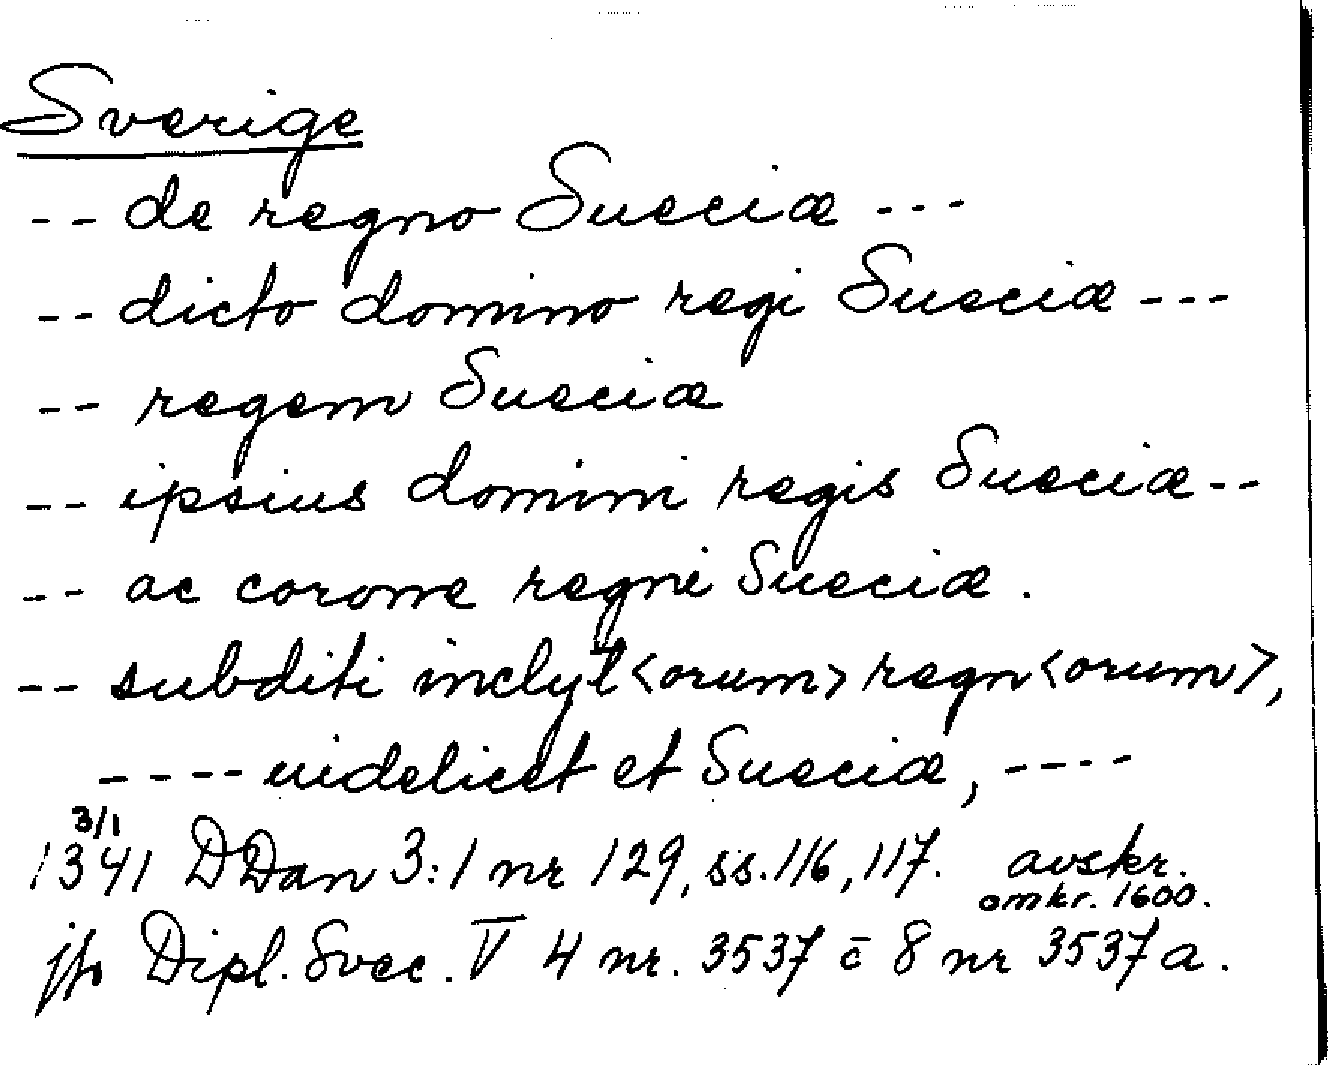 Sverige
-- de regno Sueciæ ---
-- dicto domino regi Sueciæ ---
-- regem Sueciæ
-- ipsius domini regis Sueciæ --
-- ac corone regni Sueciæ.
-- subditi inclyt<orum> regn<orum>,
---- uidelicet et Sueciæ, ----
3/1
1341 DDan 3:1 nr 129, ss. 116, 117. avskr.
omkr. 1600.
jfr Dipl. Svec. V 4 nr. 3537 c̄ 8 nr 3537 a.